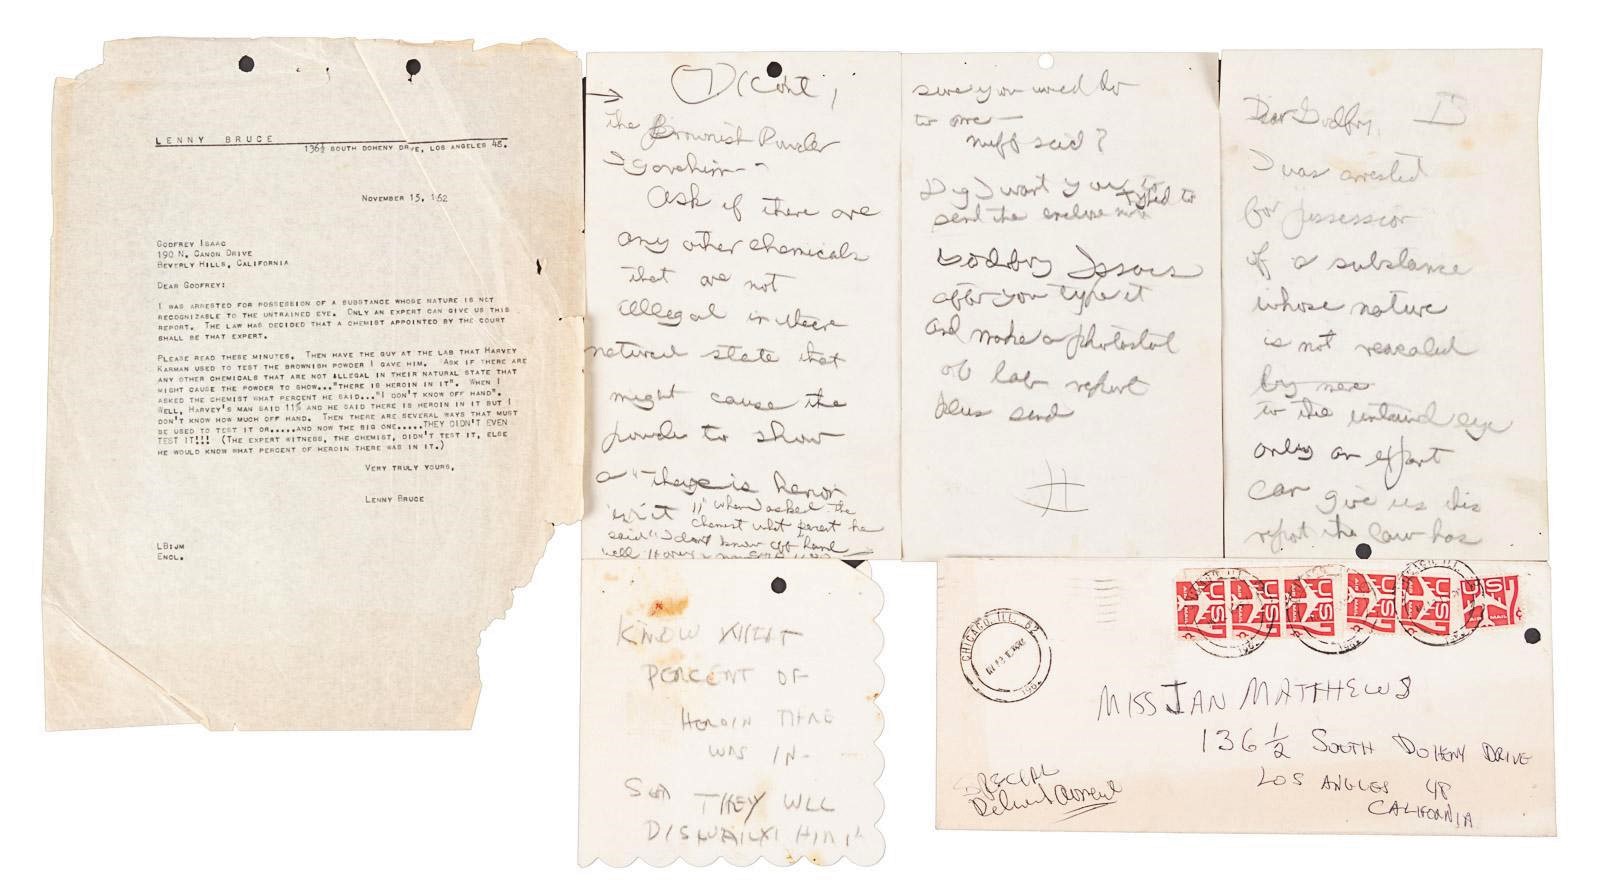 LENNY BRUCE
136½ SOUTH DOHENY DRIVE, LOS ANGELES 48.
NOVEMBER 15, 162
GODFREY ISAAC
190 N. CANON DRIVE
BEVERLY HILLS, CALIFORNIA
DEAR GODFREY:
I WAS ARRESTED FOR POSSESSION OF A SUBSTANCE WHOSE NATURE IS NOT
RECOGNIZABLE TO THE UNTRAINED EYE. ONLY AN EXPERT CAN GIVE US THIS
REPORT. THE LAW HAS DECIDED THAT A CHEMIST APPOINTED BY THE COURT
SHALL BE THAT EXPERT.
PLEASE READ THESE MINUTES. THEN HAVE THE GUY AT THE LAB THAT HARVEY
KARMAN USED TO TEST THE BROWNISH POWDER I GAVE HIM. ASK IF THERE ARE
ANY OTHER CHEMICALS THAT ARE NOT ILLEGAL IN THEIR NATURAL STATE THAT
MIGHT CAUSE THE POWDER TO SHOW..."THERE IS HEROIN IN IT". WHEN I
ASKED THE CHEMIST WHAT PERCENT HE SAID..."I DON'T KNOW OFF HAND".
WELL, HARVEY'S MAN SAID 11% AND HE SAID THERE IS HEROIN IN IT BUT I
DON'T KNOW HOW MUCH OFF HAND. THEN THERE ARE SEVERAL WAYS THAT MUST
BE USED TO TEST IT OR.....AND NOW THE BIG ONE.....THEY DIDN'T EVEN
TEST IT!!! (THE EXPERT WITNESS, THE CHEMIST, DIDN'T TEST IT, ELSE
HE WOULD KNOW WHAT PERCENT OF HEROIN THERE WAS IN IT.)
VERY TRULY YOURS,
LENNY BRUCE
LB:JM
ENCL.
(Cont,
the Brownish Powder
I gave him--
Ask if there are
any other chemicals
that are not
illegal in there
natural state that
might cause the
powder to show
a "there is
in it" when I asked the
chemist what percent he
said "I dont know off hand
well Harvey's man said
sure you would do
to me-
nuff said?
Dig I want you to
send the
Godfry Isaacs
after you type it
and make a photostat
of lab report
Also send
Dear Godfry,
I was arrested
for possession
of a substance
whose nature
is not revealed
to the untraind eye
only an expert
can give us this
report the law has
KNOW WHAT
PERCENT OF
HEROIN THERE
WAS IN-
THEY WLL
CHICAGO, ILL. 62
MISS JAN MATTHEWS
136 ½ SOUTH DOHENY DRIVE
LOS ANGLES 48
CALIFORNIA
SPECIAL